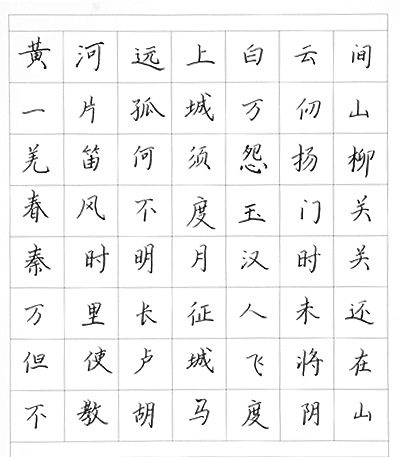 黄河远上白云间
一片孤城万仞山
羌笛何须怨扬柳
春风不度玉门关
秦时明月汉时关
万里长征人未还
但使卢城飞将在
不教胡马度阴山